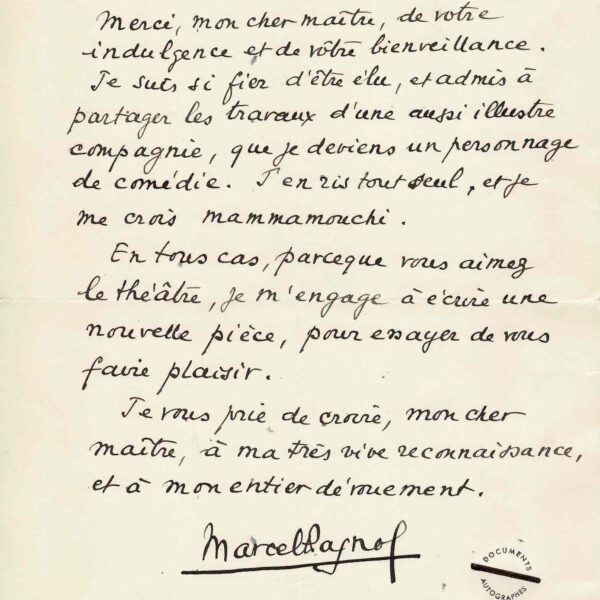 Merci, mon cher maître, de votre
indulgence et de vôtre bienveillance.
Je suis si fier d'être élu, et admis à
partager les travaux d'une aussi illustre
compagnie, que je deviens un personnage
de comédie. J'en ris tout seul, et je
me crois mammamouchi.
En tous cas, parceque vous aimez
le théâtre, je m'engage à écrire une
nouvelle pièce, pour essayer de vous
faire plaisir.
Je vous prie de croire, mon cher
maître, à ma très vive reconnaissance,
et à mon entier dévouement.
Marcel Pagnol
DOCUMENTS
AUTOGRAPHES